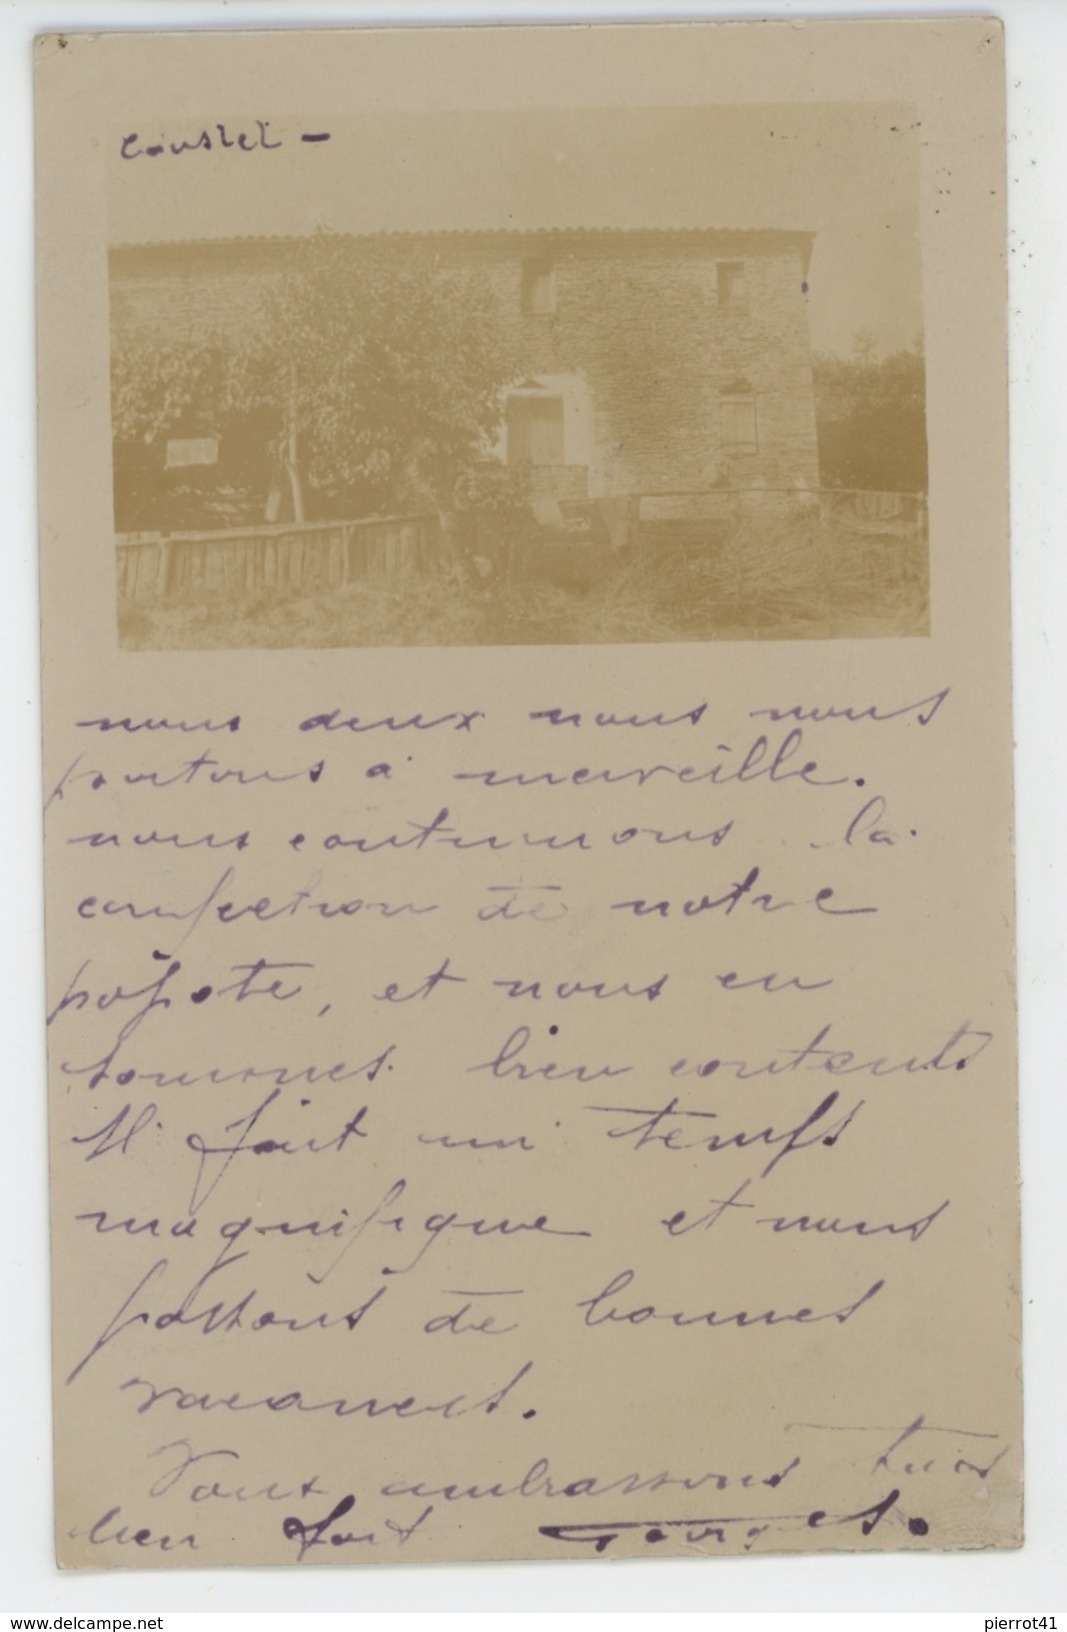 Coustet -
nous deux nous nous
portons à merveille.
nous continuons la
confection de notre
popote, et nous en
sommes bien contents
Il fait un temps
magnifique et nous
passons de bonnes
vacances.
Vous embrassons tous
bien fort Georges.
www.delcampe.net
pierrot41